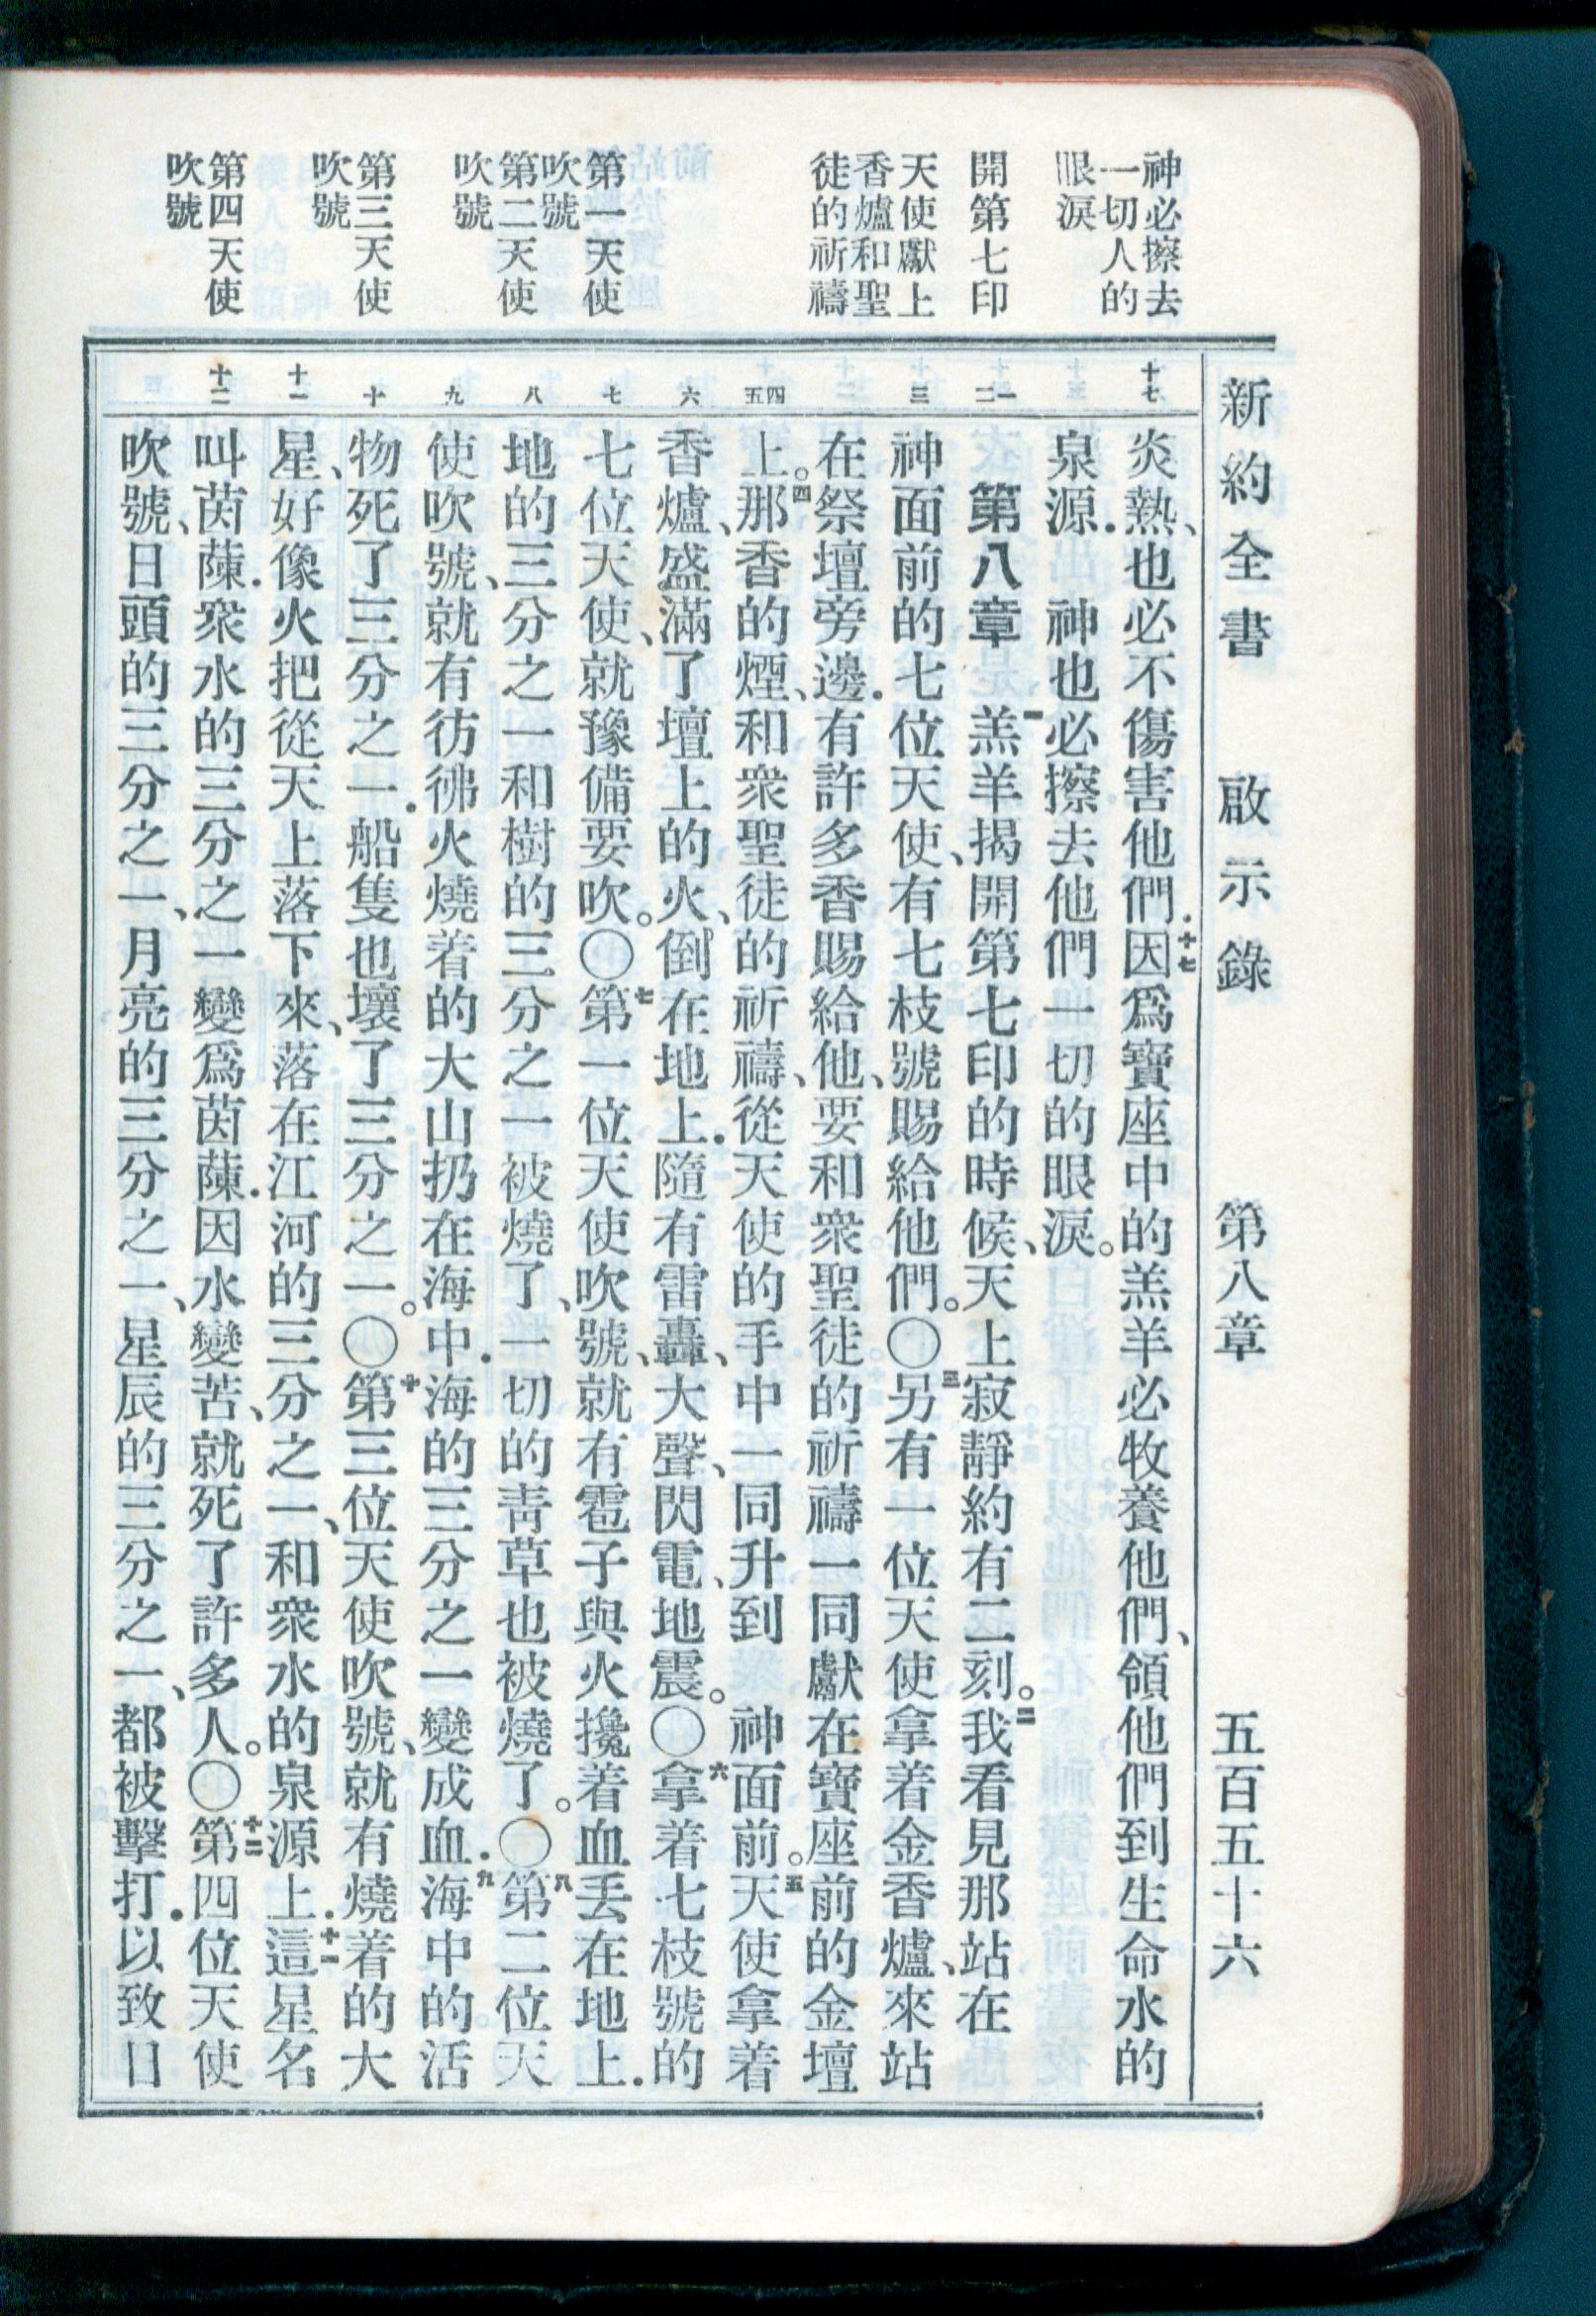 神必擦去
一切人的
眼淚
開第七印
天使獻上
香爐和聖
徒的祈禱
第一天使
吹號
第二天使
吹號
第三天使
吹號
第四天使
吹號
新約全書　啟示錄　第八章　五百五十六
十七
一
二
三
四
五
六
七
八
九
十
十一
十二
炎熱、也必不傷害他們．十七因爲寶座中的羔羊必牧養他們、領他們到生命水的
泉源．　神也必擦去他們一切的眼淚。
第八章　一羔羊揭開第七印的時候、天上寂靜約有二刻。二我看見那站在
神面前的七位天使、有七枝號賜給他們。〇三另有一位天使拿着金香爐、來站
在祭壇旁邊．有許多香賜給他、要和衆聖徒的祈禱一同獻在寶座前的金壇
上。四那香的煙、和衆聖徒的祈禱、從天使的手中一同升到　神面前。五天使拿着
香爐、盛滿了壇上的火、倒在地上．隨有雷轟、大聲、閃電、地震。〇六拿着七枝號的
七位天使、就豫備要吹。〇七第一位天使吹號、就有雹子與火攙着血丟在地上．
地的三分之一和樹的三分之一被燒了、一切的靑草也被燒了。〇八第二位天
使吹號、就有彷彿火燒着的大山扔在海中．海的三分之一變成血．九海中的活
物死了三分之一．船隻也壞了三分之一。〇十第三位天使吹號、就有燒着的大
星、好像火把從天上落下來、落在江河的三分之一、和衆水的泉源上．十一這星名
叫茵蔯．衆水的三分之一變爲茵蔯．因水變苦、就死了許多人。〇十二第四位天使
吹號、日頭的三分之一、月亮的三分之一、星辰的三分之一、都被擊打．以致日